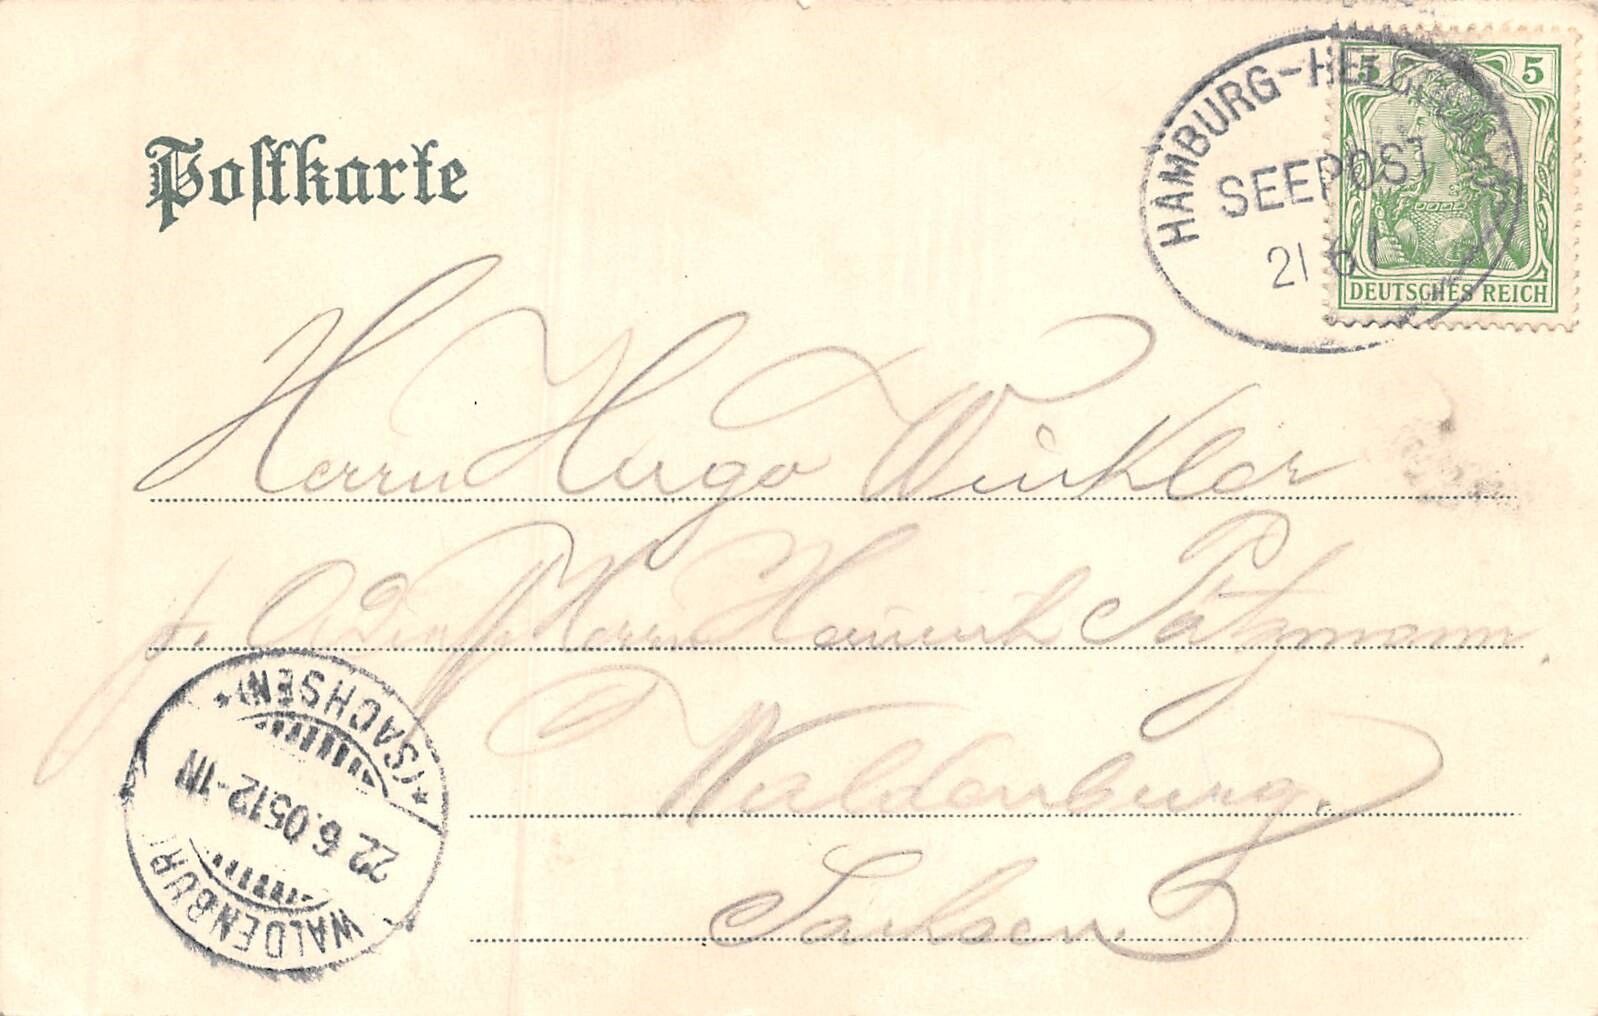 Postkarte
5 5
DEUTSCHES REICH
HAMBURG-HELGOLAND
SEEPOST
21 6
Herrn Hugo Winkler
p. Adr. Herrn Heinrich Pätzmann.
Waldenburg.
Sachsen.
WALDENBURG
22.6.05.12-1N
*(SACHSEN)*